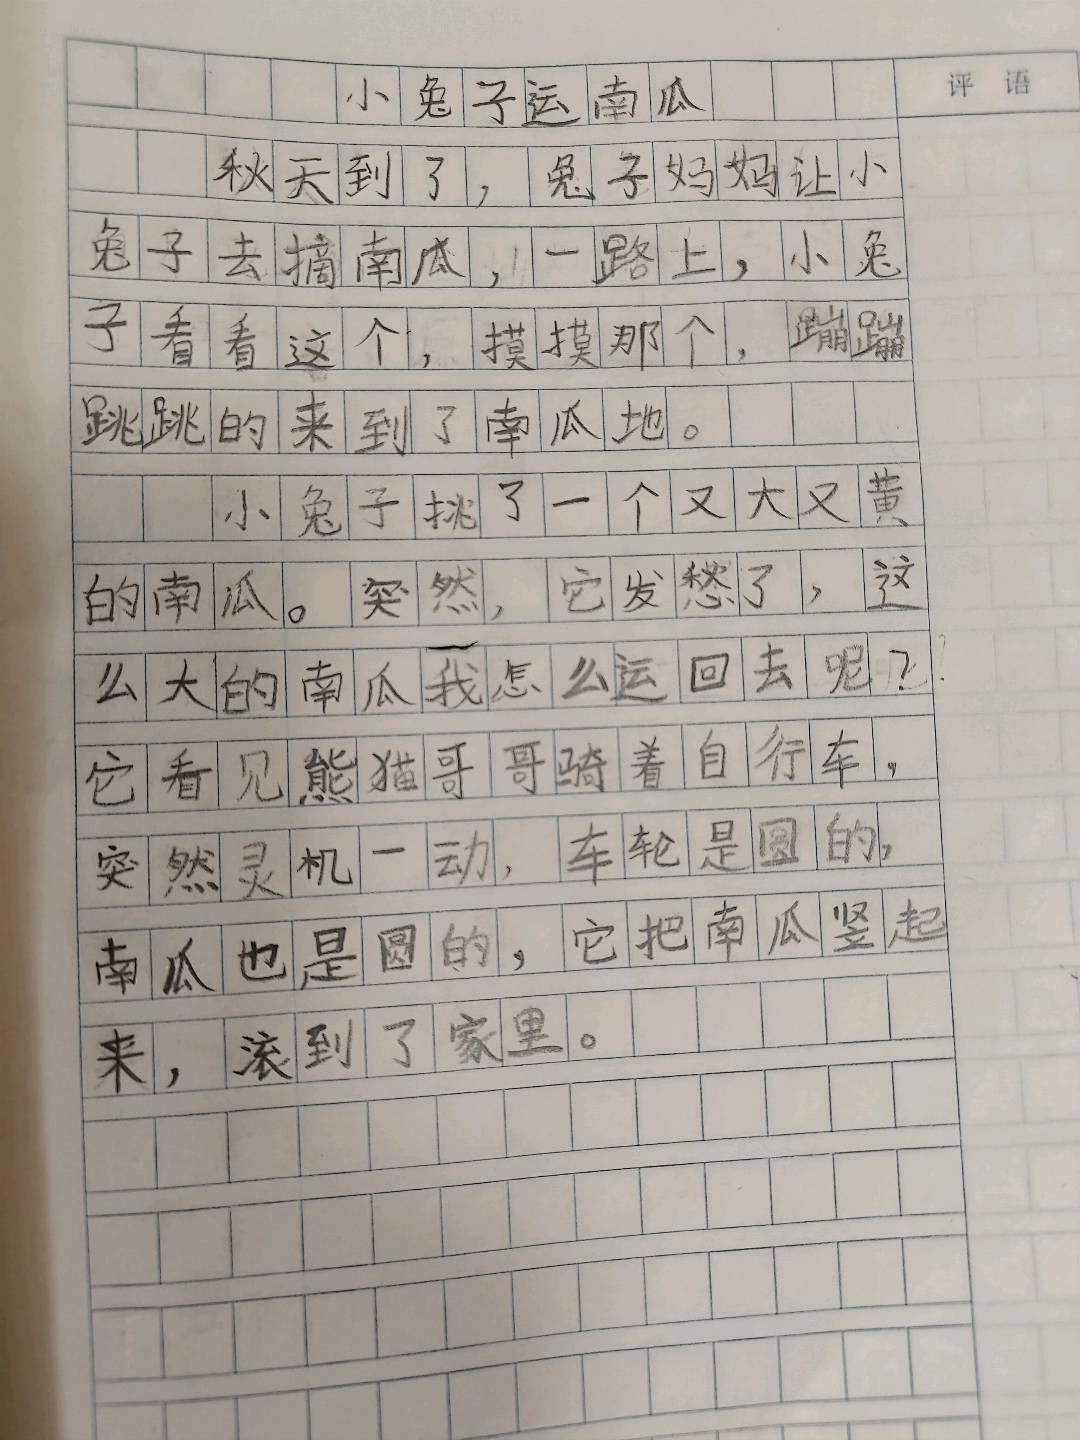 小兔子运南瓜
评语
秋天到了，兔子妈妈让小
兔子去摘南瓜，一路上，小兔
子看看这个，摸摸那个，蹦蹦
跳跳的来到了南瓜地。
小兔子挑了一个又大又黄
的南瓜。突然，它发愁了，这
么大的南瓜我怎么运回去呢？
它看见熊猫哥哥骑着自行车，
突然灵机一动，车轮是圆的，
南瓜也是圆的，它把南瓜竖起
来，滚到了家里。